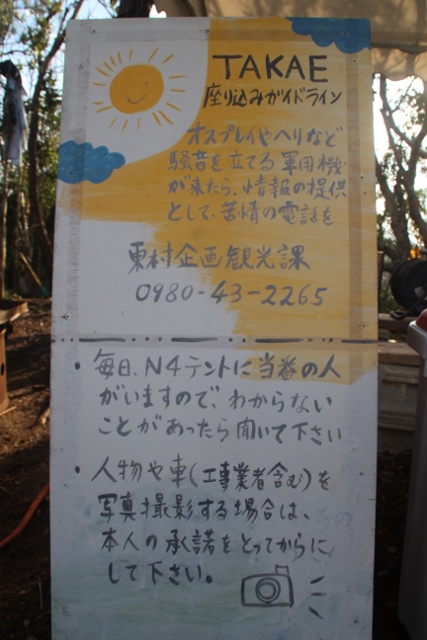 TAKAE
座り込みガイドライン
オスプレイやヘリなど
騒音を立てる軍用機
が来たら、情報の提供
として、苦情の電話を
東村企画観光課
0980-43-2265
・毎日、N4テントに当番の人
がいますので、わからない
ことがあったら聞いて下さい
・人物や車(工事業者含む)を
写真撮影する場合は、
本人の承諾をとってからに
して下さい。